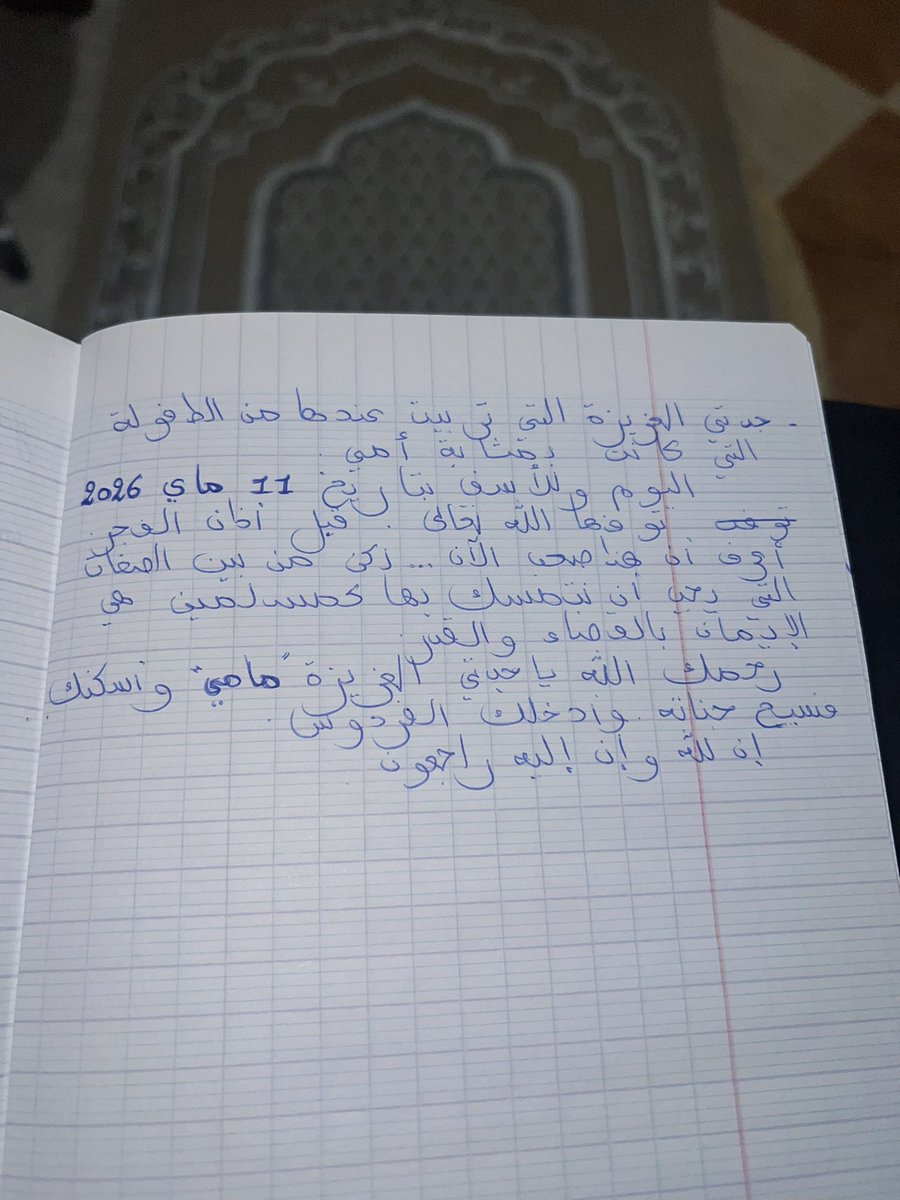 . جدتي العزيزة التي تربيت عندها من الطفولة
التي كانت بمثابة أمي.
اليوم وللأسف بتاريخ 11 ماي 2026
توفاها الله تعالى. قبل أذان الفجر.
أعرف أن هنا صعب الآن... لكن من بين الصفات
التي يجب أن نتمسك بها كمسلمين هي
الإيمان بالقضاء والقدر.
رحمك الله يا جدتي العزيزة "مامي" وأسكنك
فسيح جناته وأدخلك الفردوس.
إن لله وإن إليه راجعون